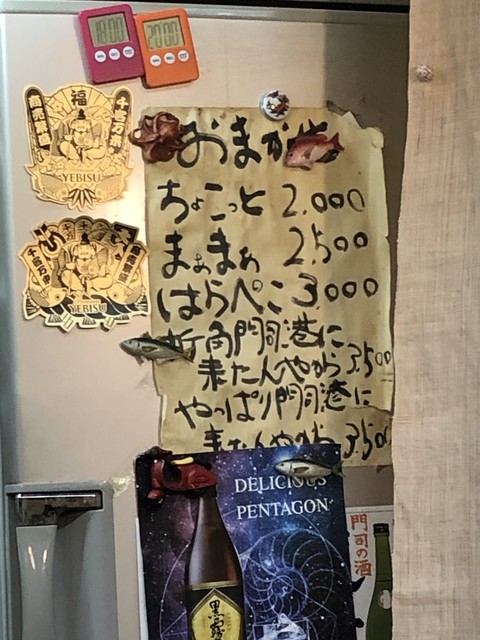 18:00
20:00
福
商売繁盛
千客万来
YEBISU
YEBISU
おまかせ
ちょこっと 2.000
まぁまぁ 2.500
はらぺこ 3.000
折角門司港に
来たんやから 3.500
やっぱり門司港に
来たんやから 3.500
DELICIOUS
PENTAGON
黒霧
門司の酒